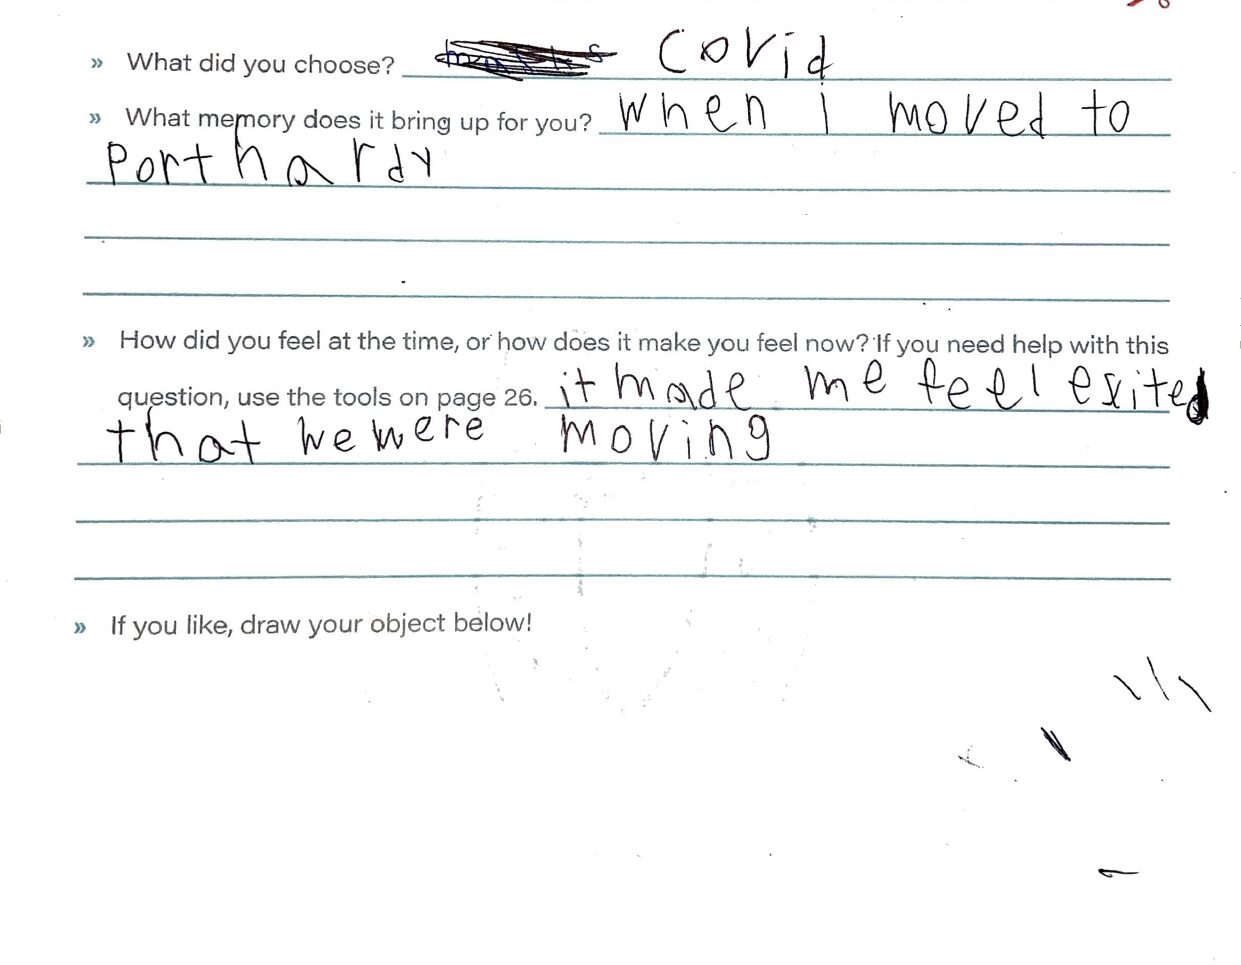 » What did you choose? Covid
» What memory does it bring up for you? when i moved to
Port hardy
» How did you feel at the time, or how does it make you feel now? If you need help with this
question, use the tools on page 26. it made me feel exited
that we were moving
» If you like, draw your object below!